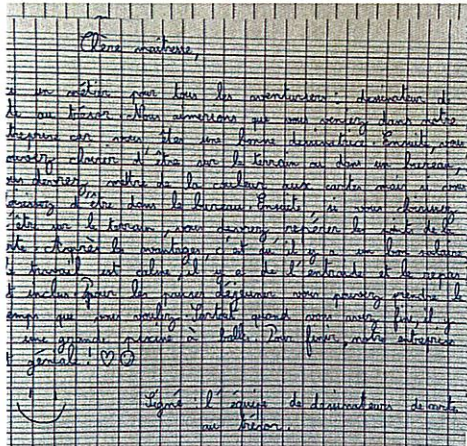 Chère maîtresse,
un métier pour tous les aventuriers : dessinateur de
au trésor. Nous aimerions que vous veniez dans notre
car vous êtes une bonne dessinatrice. Ensuite, vous
choisir d'être sur le terrain ou dans un bureau,
devrez mettre de la couleur aux cartes mais si vous
d'être dans le bureau. Ensuite, si vous
sur le terrain, vous devrez repérer le de la
Après les avantages, c'est qu'il y a un bon salaire
travail est calme, il y a de l'entraide et le repas
inclus. Pour les pauses déjeuner vous pouvez prendre le
que vous voulez. Surtout quand vous avez fini, il y
une grande piscine à balle. Pour finir, notre entreprise
génial ! ♡☺
Signé : l'équipe de dessinateurs de carte
au trésor.